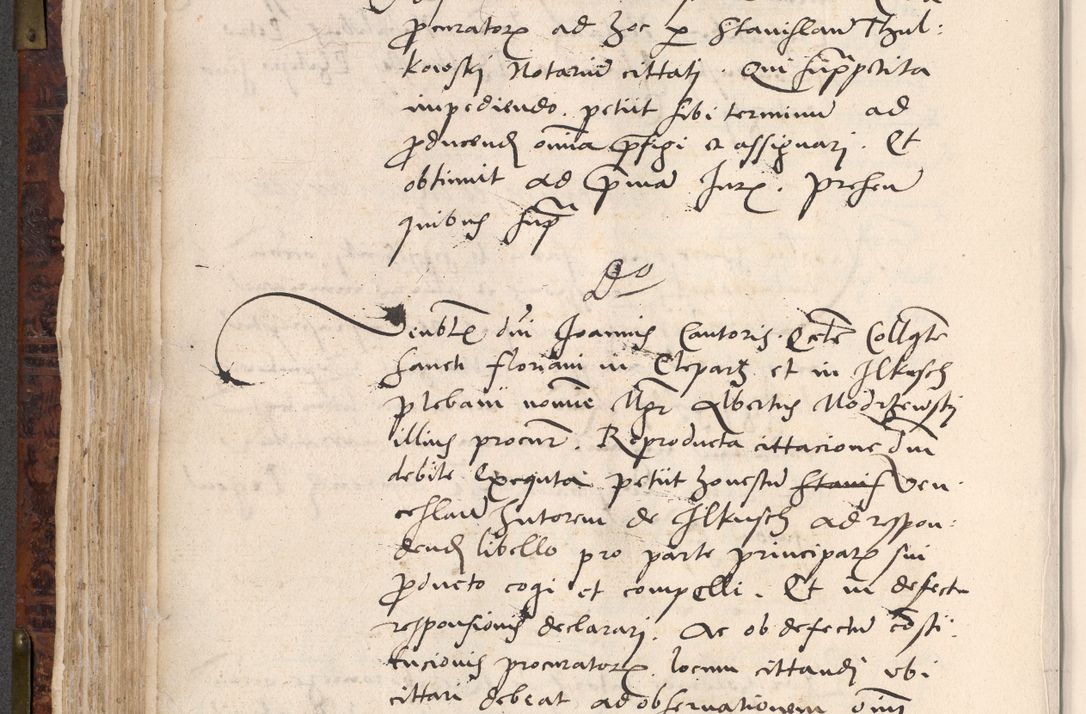 procurator ad hoc per Stanislaum Thul:
kowskj Notarium cittatj. Qui suprapetita
impediendo. petiit sibi terminum ad
producend omnia prefigi et assignarj. Et
obtinuit ad primam Jur. Presen
quibus supra
Do
Venbl dni Joannis Cantoris. Eccle Collgte
sancti floriani in Cleparz et in Jlkusch
plebani nomine Mgr Albertus Modrzewskj
illius procur. Reproducta cittacione dum
debite exequta petiit honestum Ven
ceslaum Sutorem de Jlkusch ad respon:
dend libello pro parte principalis sui
producto cogi et compelli. Et in defectu
responsionis declararj. Ac ob defectum consti:
tucionis procurator. locum cittandj ubi
cittari debeat ad observationem omni